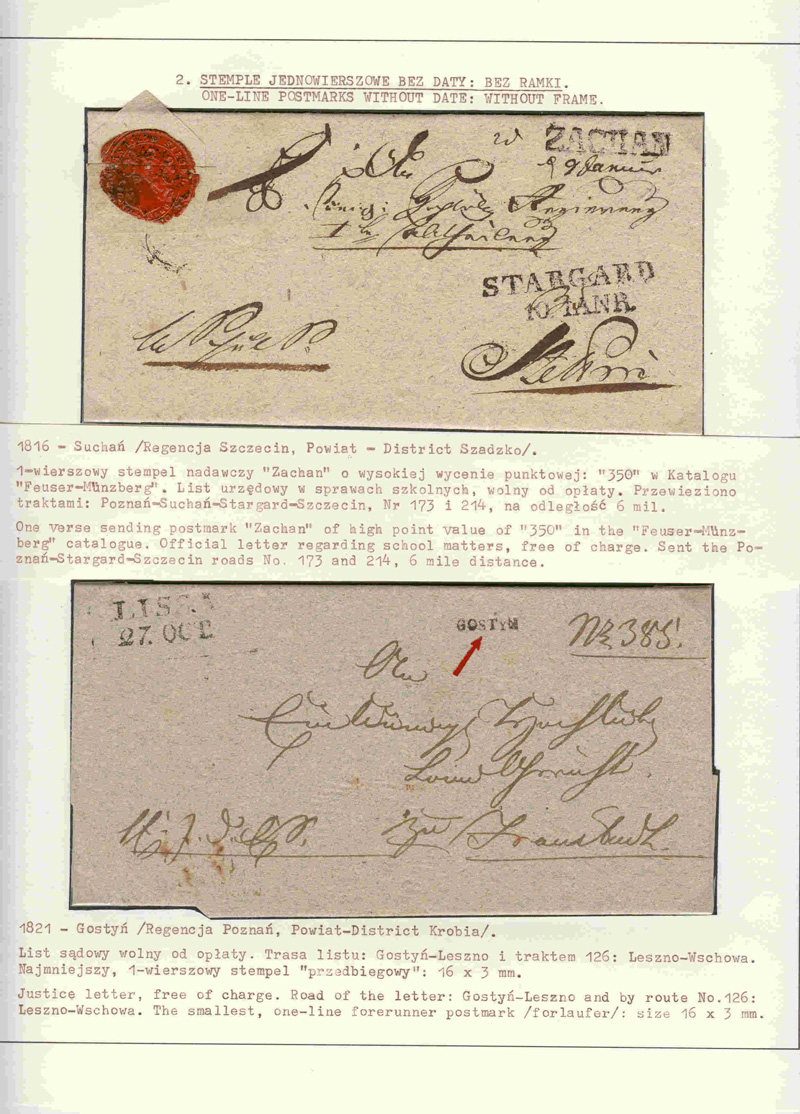 2. STEMPLE JEDNOWIERSZOWE BEZ DATY: BEZ RAMKI.
ONE-LINE POSTMARKS WITHOUT DATE: WITHOUT FRAME.
ZACHAN
9 Januar
Regierung
Abtheilung
STARGARD
10 IANR.
Stettin
1816 - Suchań /Regencja Szczecin, Powiat - District Szadzko/.
1-wierszowy stempel nadawczy "Zachan" o wysokiej wycenie punktowej: "350" w Katalogu
"Feuser-Münzberg". List urzędowy w sprawach szkolnych, wolny od opłaty. Przewieziono
traktami: Poznań-Suchań-Stargard-Szczecin, Nr 173 i 214, na odległość 6 mil.
One verse sending postmark "Zachan" of high point value of "350" in the "Feuser-Münz-
berg" catalogue. Official letter regarding school matters, free of charge. Sent the Po-
znań-Stargard-Szczecin roads No. 173 and 214, 6 mile distance.
27. OCT
GOSTYN
No 385.
An
Land Gericht.
zu Fraustadt.
1821 - Gostyń /Regencja Poznań, Powiat-District Krobia/.
List sądowy wolny od opłaty. Trasa listu: Gostyń-Leszno i traktem 126: Leszno-Wschowa.
Najmniejszy, 1-wierszowy stempel "przedbiegowy": 16 x 3 mm.
Justice letter, free of charge. Road of the letter: Gostyń-Leszno and by route No.126:
Leszno-Wschowa. The smallest, one-line forerunner postmark /forlaufer/: size 16 x 3 mm.